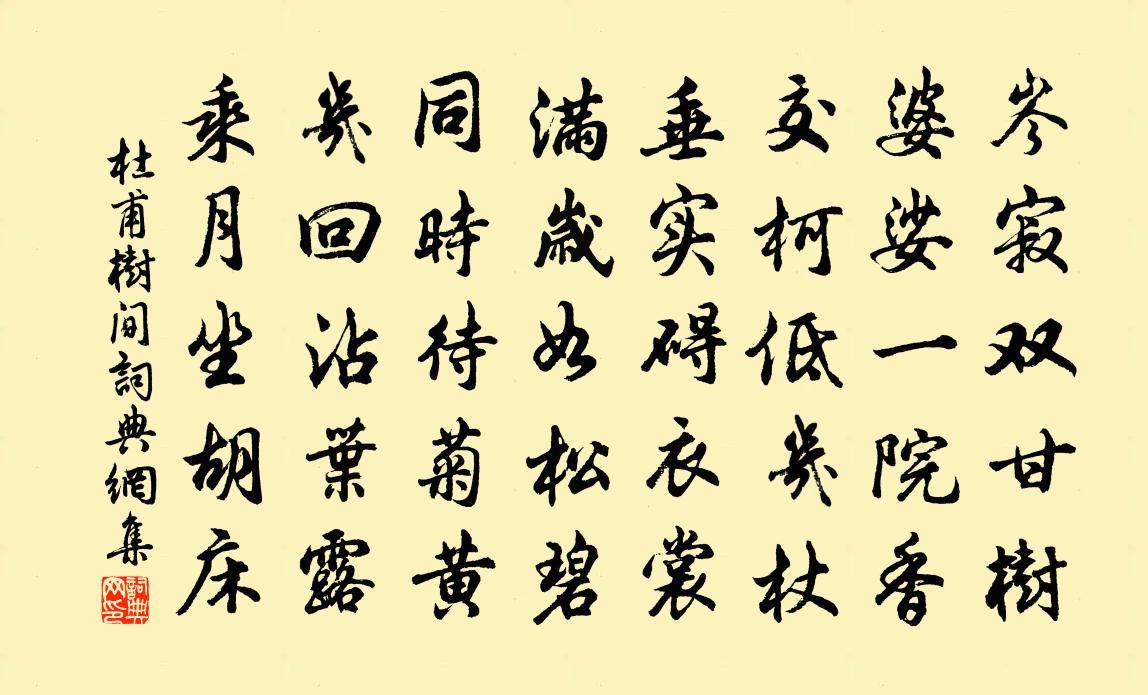 岑寂双甘樹
婆娑一院香
交柯低幾杖
垂实碍衣裳
滿歲如松碧
同時待菊黄
幾回沾葉露
乘月坐胡床
杜甫樹间詞典網集
詞典网印